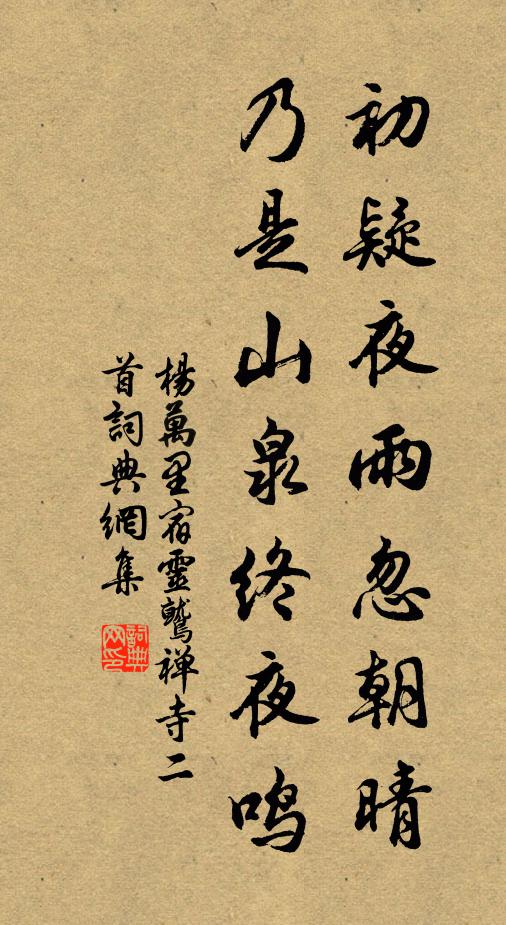 初疑夜雨忽朝晴
乃是山泉終夜鸣
楊萬里宿靈鷲禅寺二
首詞典網集
詞典
网印